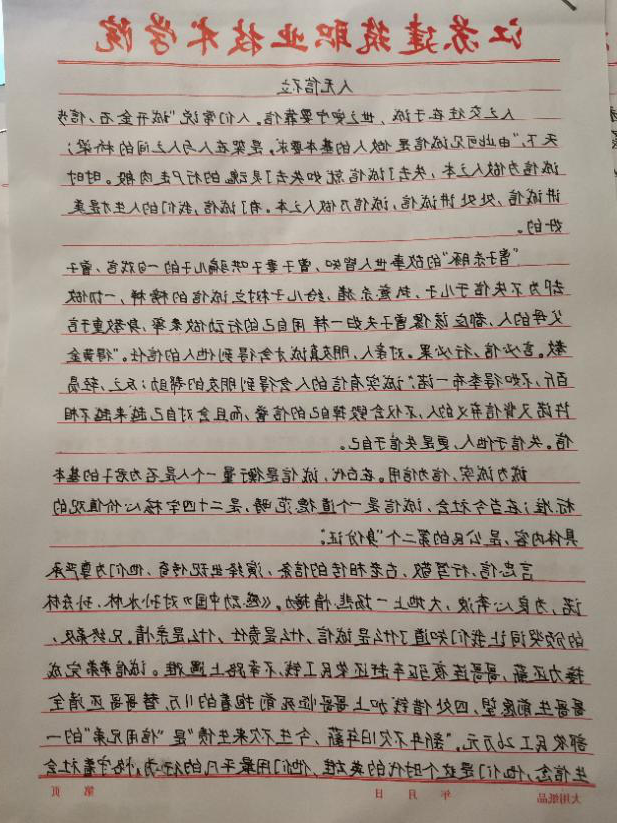 江苏建筑职业技术学院
人无信不立
人之交往在于诚，世之安宁要靠信。人们常说"诚开金石，信步
天下"由此可见诚信是做人的基本要求，是架在人与人之间的桥梁；
诚信为做人之本，失去了诚信就如失去了灵魂的行尸走肉般。时时
讲诚信，处处讲诚信，诚信乃做人之本。有了诚信，我们的人生才是美
好的。
"曾子杀豚"的故事世人皆知，曾子妻子哄骗儿子的一句戏言，曾子
却为不失信于儿子，执意杀猪，给儿子树立诚信的榜样，一切做
父母的人，都应该像曾子夫妇一样用自己的行动做表率，身教重于言
教。言必信，行必果。对亲人，朋友真诚才会得到他人的信任。"得黄金
百斤，不如得季布一诺"，诚实有信的人会得到朋友的帮助；反之，轻易
许诺又背信弃义的人，不仅会毁掉自己的信誉，而且会对自己越来越不相
信。失信于他人，更是失信于自己。
诚为诚实，信为信用。在古代，诚信是衡量一个人是否为君子的基本
标准；在当今社会，诚信是一个道德范畴，是二十四字核心价值观的
具体内容，是公民的第二个"身份证"。
言忠信，行笃敬，古老相传的信条，演绎出现传奇，他们为尊严承
诺，为良心奔波，大地上一场悲情接力。《感动中国》对孙水林、孙东林
的颁奖词让我们知道了什么是诚信，什么是责任，什么是亲情。兄终弟及，
接力还薪，哥哥连夜驱车赶还农民工钱，不幸路上遇难。诚信弟弟完成
哥哥生前愿望，四处借钱加上哥哥临死前抱着的11万，替哥哥还清全
部农民工26万元。"新年不欠旧年薪，今生不欠来生债"是"信用兄弟"的一
生信念，他们是这个时代的英雄，他们用最平凡的行为，恪守着社会
大明纸品 年 月 日 第 页